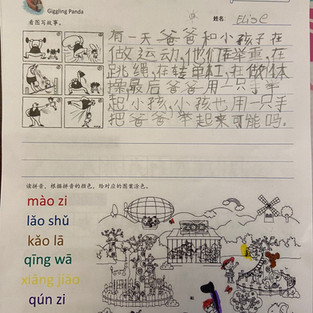 Giggling Panda
看图写故事。
姓名: Elise
有一天爸爸和小孩子在
做运动,他们在举重,在
跳绳,在转单杠,在做体
操最后爸爸用一只手
起小孩,小孩也用一只手
把爸爸举起来可能吗.
读拼音,根据拼音的颜色,给对应的图案涂色。
mào zi
lǎo shǔ
kǎo lā
qīng wā
xiāng jiāo
qún zi
ZOO